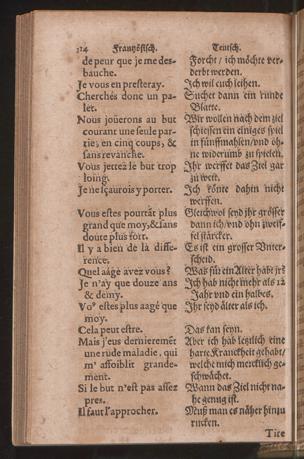 314 Frantzösisch. Teutsch.
de peur que je me des- Forcht / ich möchte ver-
bauche. derbt werden.
Je vous en presteray. Ich wil euch leihen.
Cherchés donc un pa- Suchet dann ein runde
let. Blatte.
Nous jouërons au but Wir wollen nach dem ziel
courant une seule par- schiessen ein einiges spiel
tie, en cinq coups, & in fünff mahlen / und oh-
sans revanche. ne widerumb zu spielen.
Vous jettez le but trop Ihr werffet das Ziel gar
loing. zu weit.
Je ne sçaurois y porter. Ich könte dahin nicht
werffen.
Vous estes pourtãt plus Gleichwol seyd jhr grösser
grand que moy, & sans dann ich / und ohn zweif-
doute plus fort. fel stärcker.
Il y a bien de la diffe- Es ist ein grosser Unter-
rence. scheid.
Quel aage avez vous? Was für ein Alter habt jhr?
Je n'ay que douze ans Ich hab nicht mehr als 12
& demy. Jahr und ein halbes.
Voꝰ estes plus aagé que Ihr seyd älter als ich.
moy.
Cela peut estre. Das kan seyn.
Mais j'eus dernieremẽt Aber ich hab letzlich eine
une rude maladie, qui harte Kranckheit gehabt /
m' affoiblit grande- welche mich mercklich ge-
ment. schwächet.
Si le but n'est pas assez Wann das Ziel nicht na-
pres. he genug ist.
Il faut l'approcher. Muß man es näher hinzu
rucken.